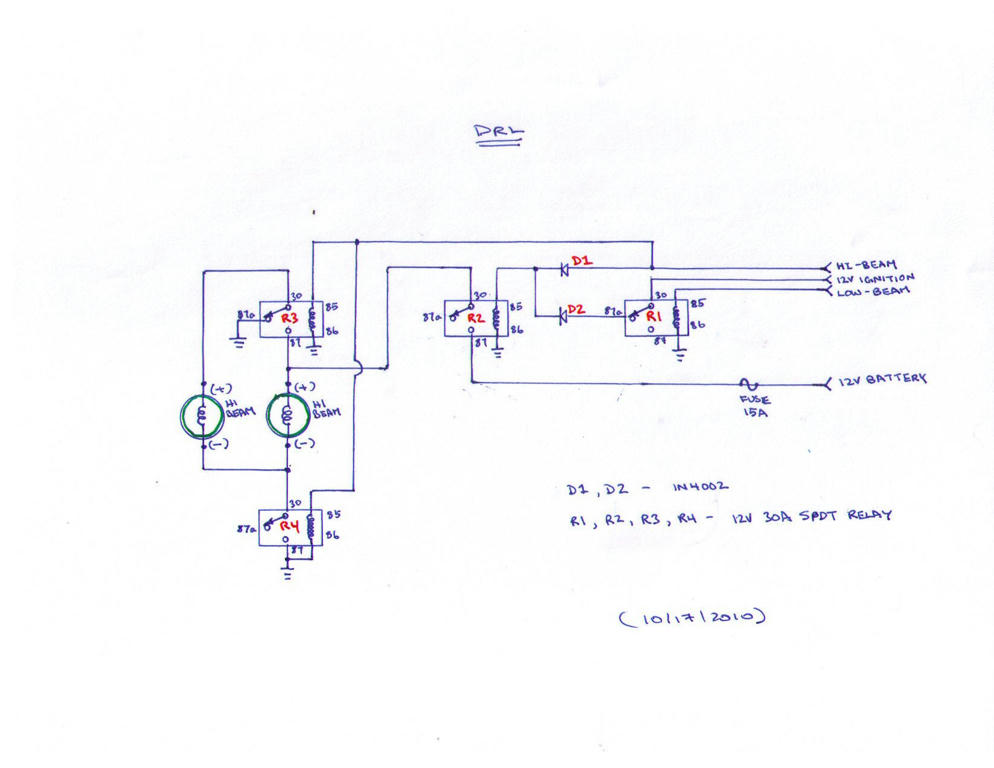 DRL
HI-BEAM
12V IGNITION
LOW-BEAM
D1
D2
30
85
87a
R3
86
87
30
85
87a
R2
86
87
30
85
87a
R1
86
87
12V BATTERY
FUSE
15A
(+)
HI
BEAM
(-)
(+)
HI
BEAM
(-)
30
85
87a
R4
86
87
D1, D2 - IN4002
R1, R2, R3, R4 - 12V 30A SPDT RELAY
(10/17/2010)